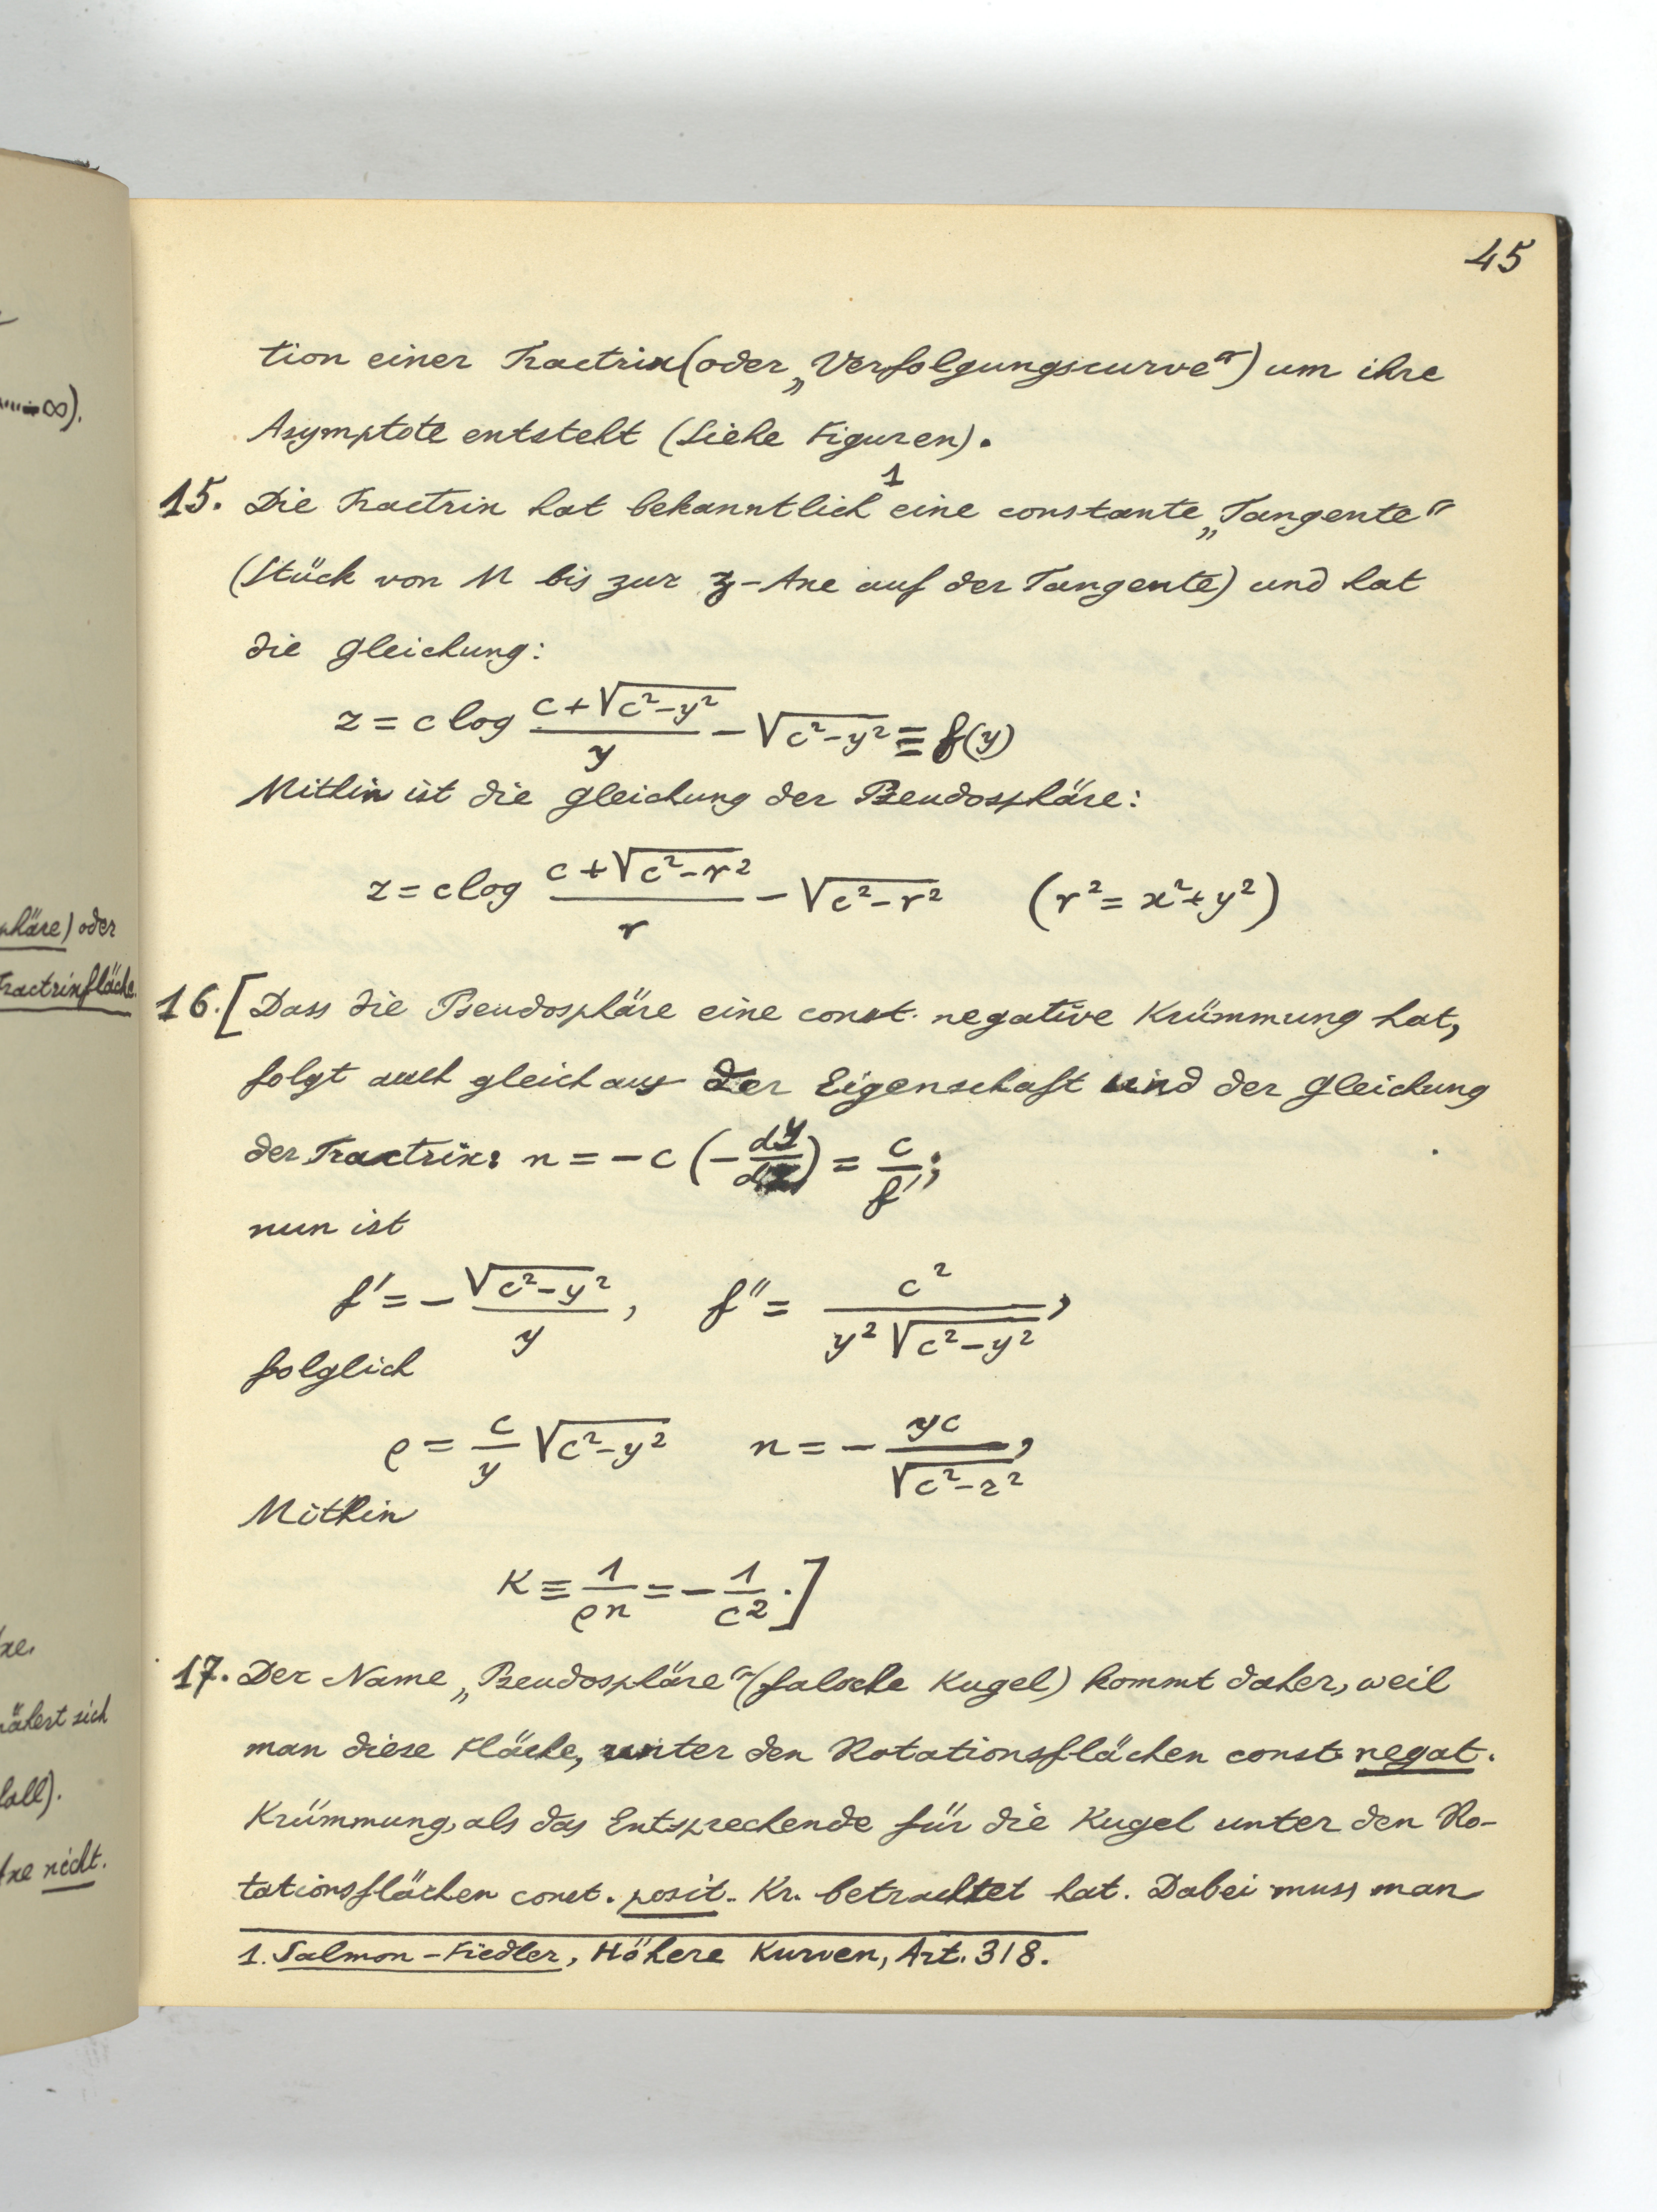 45
tion einer Tractrix (oder „Verfolgungscurve“) um ihre
Asymptote entsteht (siehe Figuren).
15. Die Tractrix hat bekanntlich¹ eine constante „Tangente“
(Stück von M bis zur z-Axe auf der Tangente) und hat
die Gleichung:
z = c log (c+√(c²-y²))/y - √(c²-y²) ≡ f(y)
Mithin ist die Gleichung der Pseudosphäre:
z = c log (c+√(c²-r²))/r - √(c²-r²) (r² = x²+y²)
16. [Dass die Pseudosphäre eine const. negative Krümmung hat,
folgt auch gleich aus der Eigenschaft und der Gleichung
der Tractrix: n = -c (-dy/dz) = c/f';
nun ist
f' = -√(c²-y²)/y, f'' = c²/(y²√(c²-y²)),
folglich
ρ = c/y √(c²-y²) n = -yc/√(c²-z²),
Mithin
K ≡ 1/ρn = -1/c².]
17. Der Name „Pseudosphäre“ (falsche Kugel) kommt daher, weil
man diese Fläche, unter den Rotationsflächen const. negat.
Krümmung, als das Entsprechende für die Kugel unter den Ro-
tationsflächen const. posit. Kr. betrachtet hat. Dabei muss man
1. Salmon-Fiedler, Höhere Kurven, Art. 318.
∞).
phäre) oder
Tractrixfläche.
xe.
nähert sich
fall).
Axe nicht.